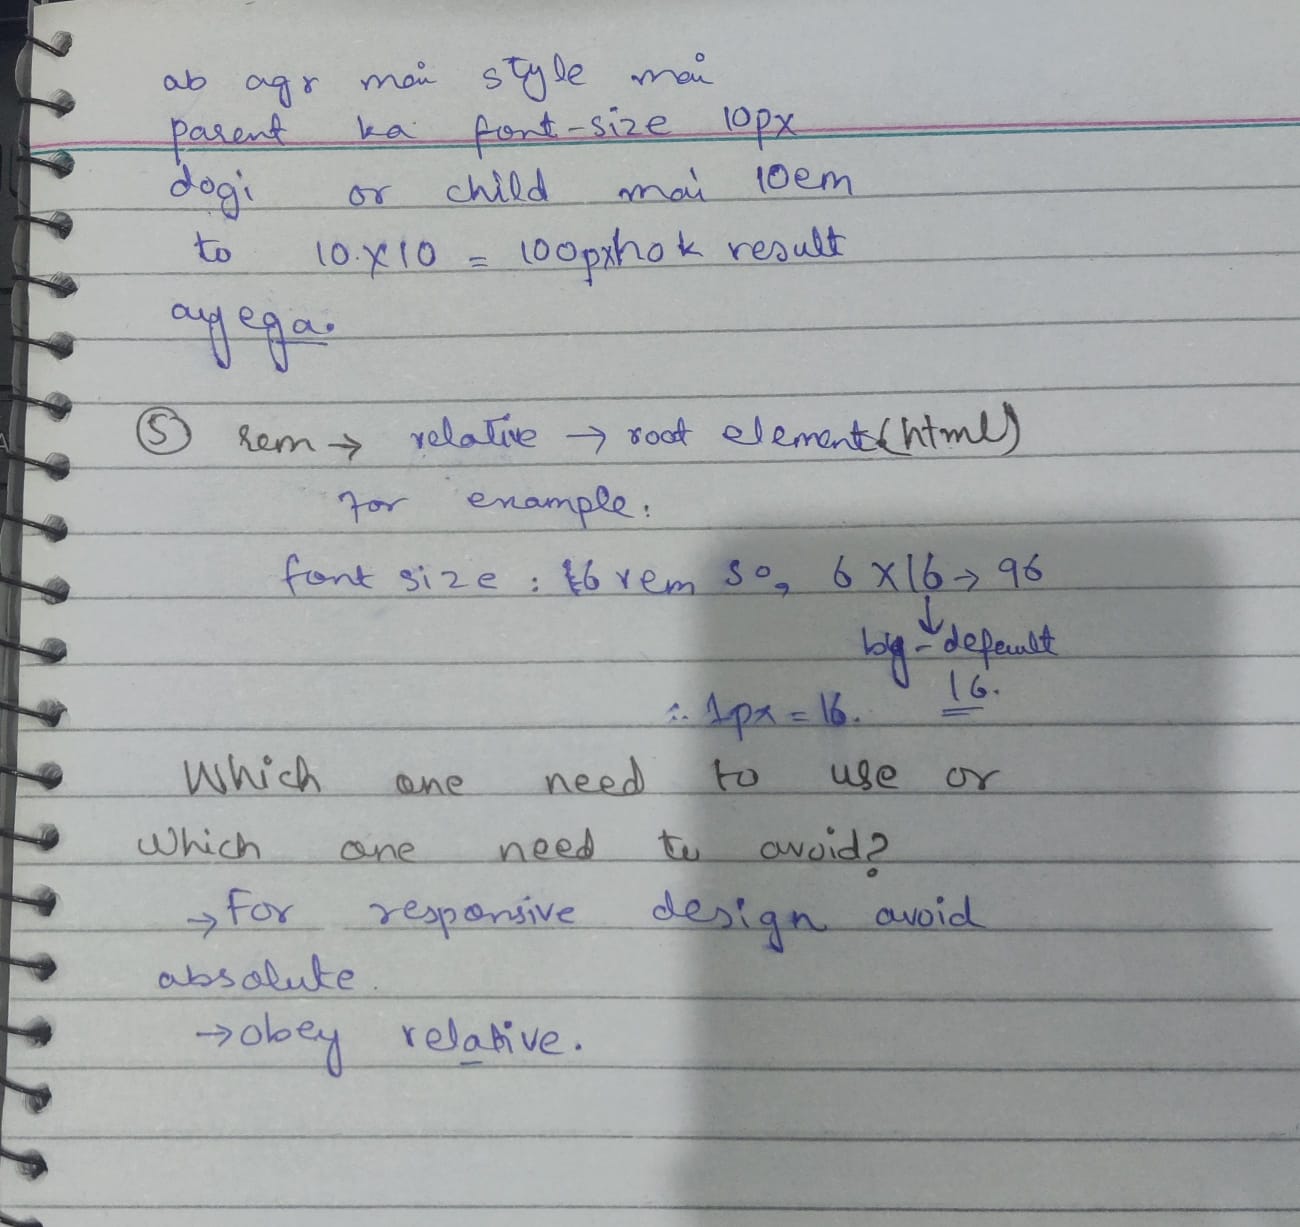 ab agr mai style mai
parent ka font-size 10px
dogi or child mai 10em
to 10x10 = 100px ho k result
ayega.
⑤ rem → relative → root element (html)
for example:
font size : 6 rem so, 6 x 16 → 96
↓
by-default
16.
∴ 1px = 16.
Which one need to use or
which one need to avoid?
→ For responsive design avoid
absolute.
→ obey relative.